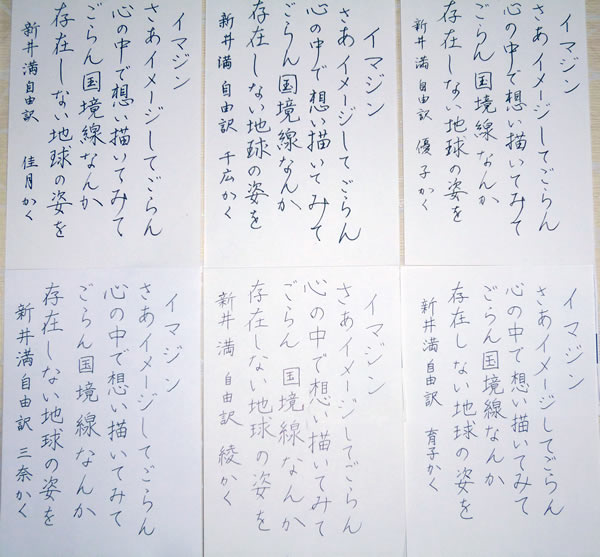 イマジン
さあイメージしてごらん
心の中で想い描いてみて
ごらん国境線なんか
存在しない地球の姿を
新井満自由訳 優子かく
イマジン
さあイメージしてごらん
心の中で想い描いてみて
ごらん国境線なんか
存在しない地球の姿を
新井満自由訳 千広かく
イマジン
さあイメージしてごらん
心の中で想い描いてみて
ごらん国境線なんか
存在しない地球の姿を
新井満自由訳 佳月かく
イマジン
さあイメージしてごらん
心の中で想い描いてみて
ごらん国境線なんか
存在しない地球の姿を
新井満自由訳 育子かく
イマジン
さあイメージしてごらん
心の中で想い描いてみて
ごらん国境線なんか
存在しない地球の姿を
新井満自由訳 綾かく
イマジン
さあイメージしてごらん
心の中で想い描いてみて
ごらん国境線なんか
存在しない地球の姿を
新井満自由訳 三奈かく